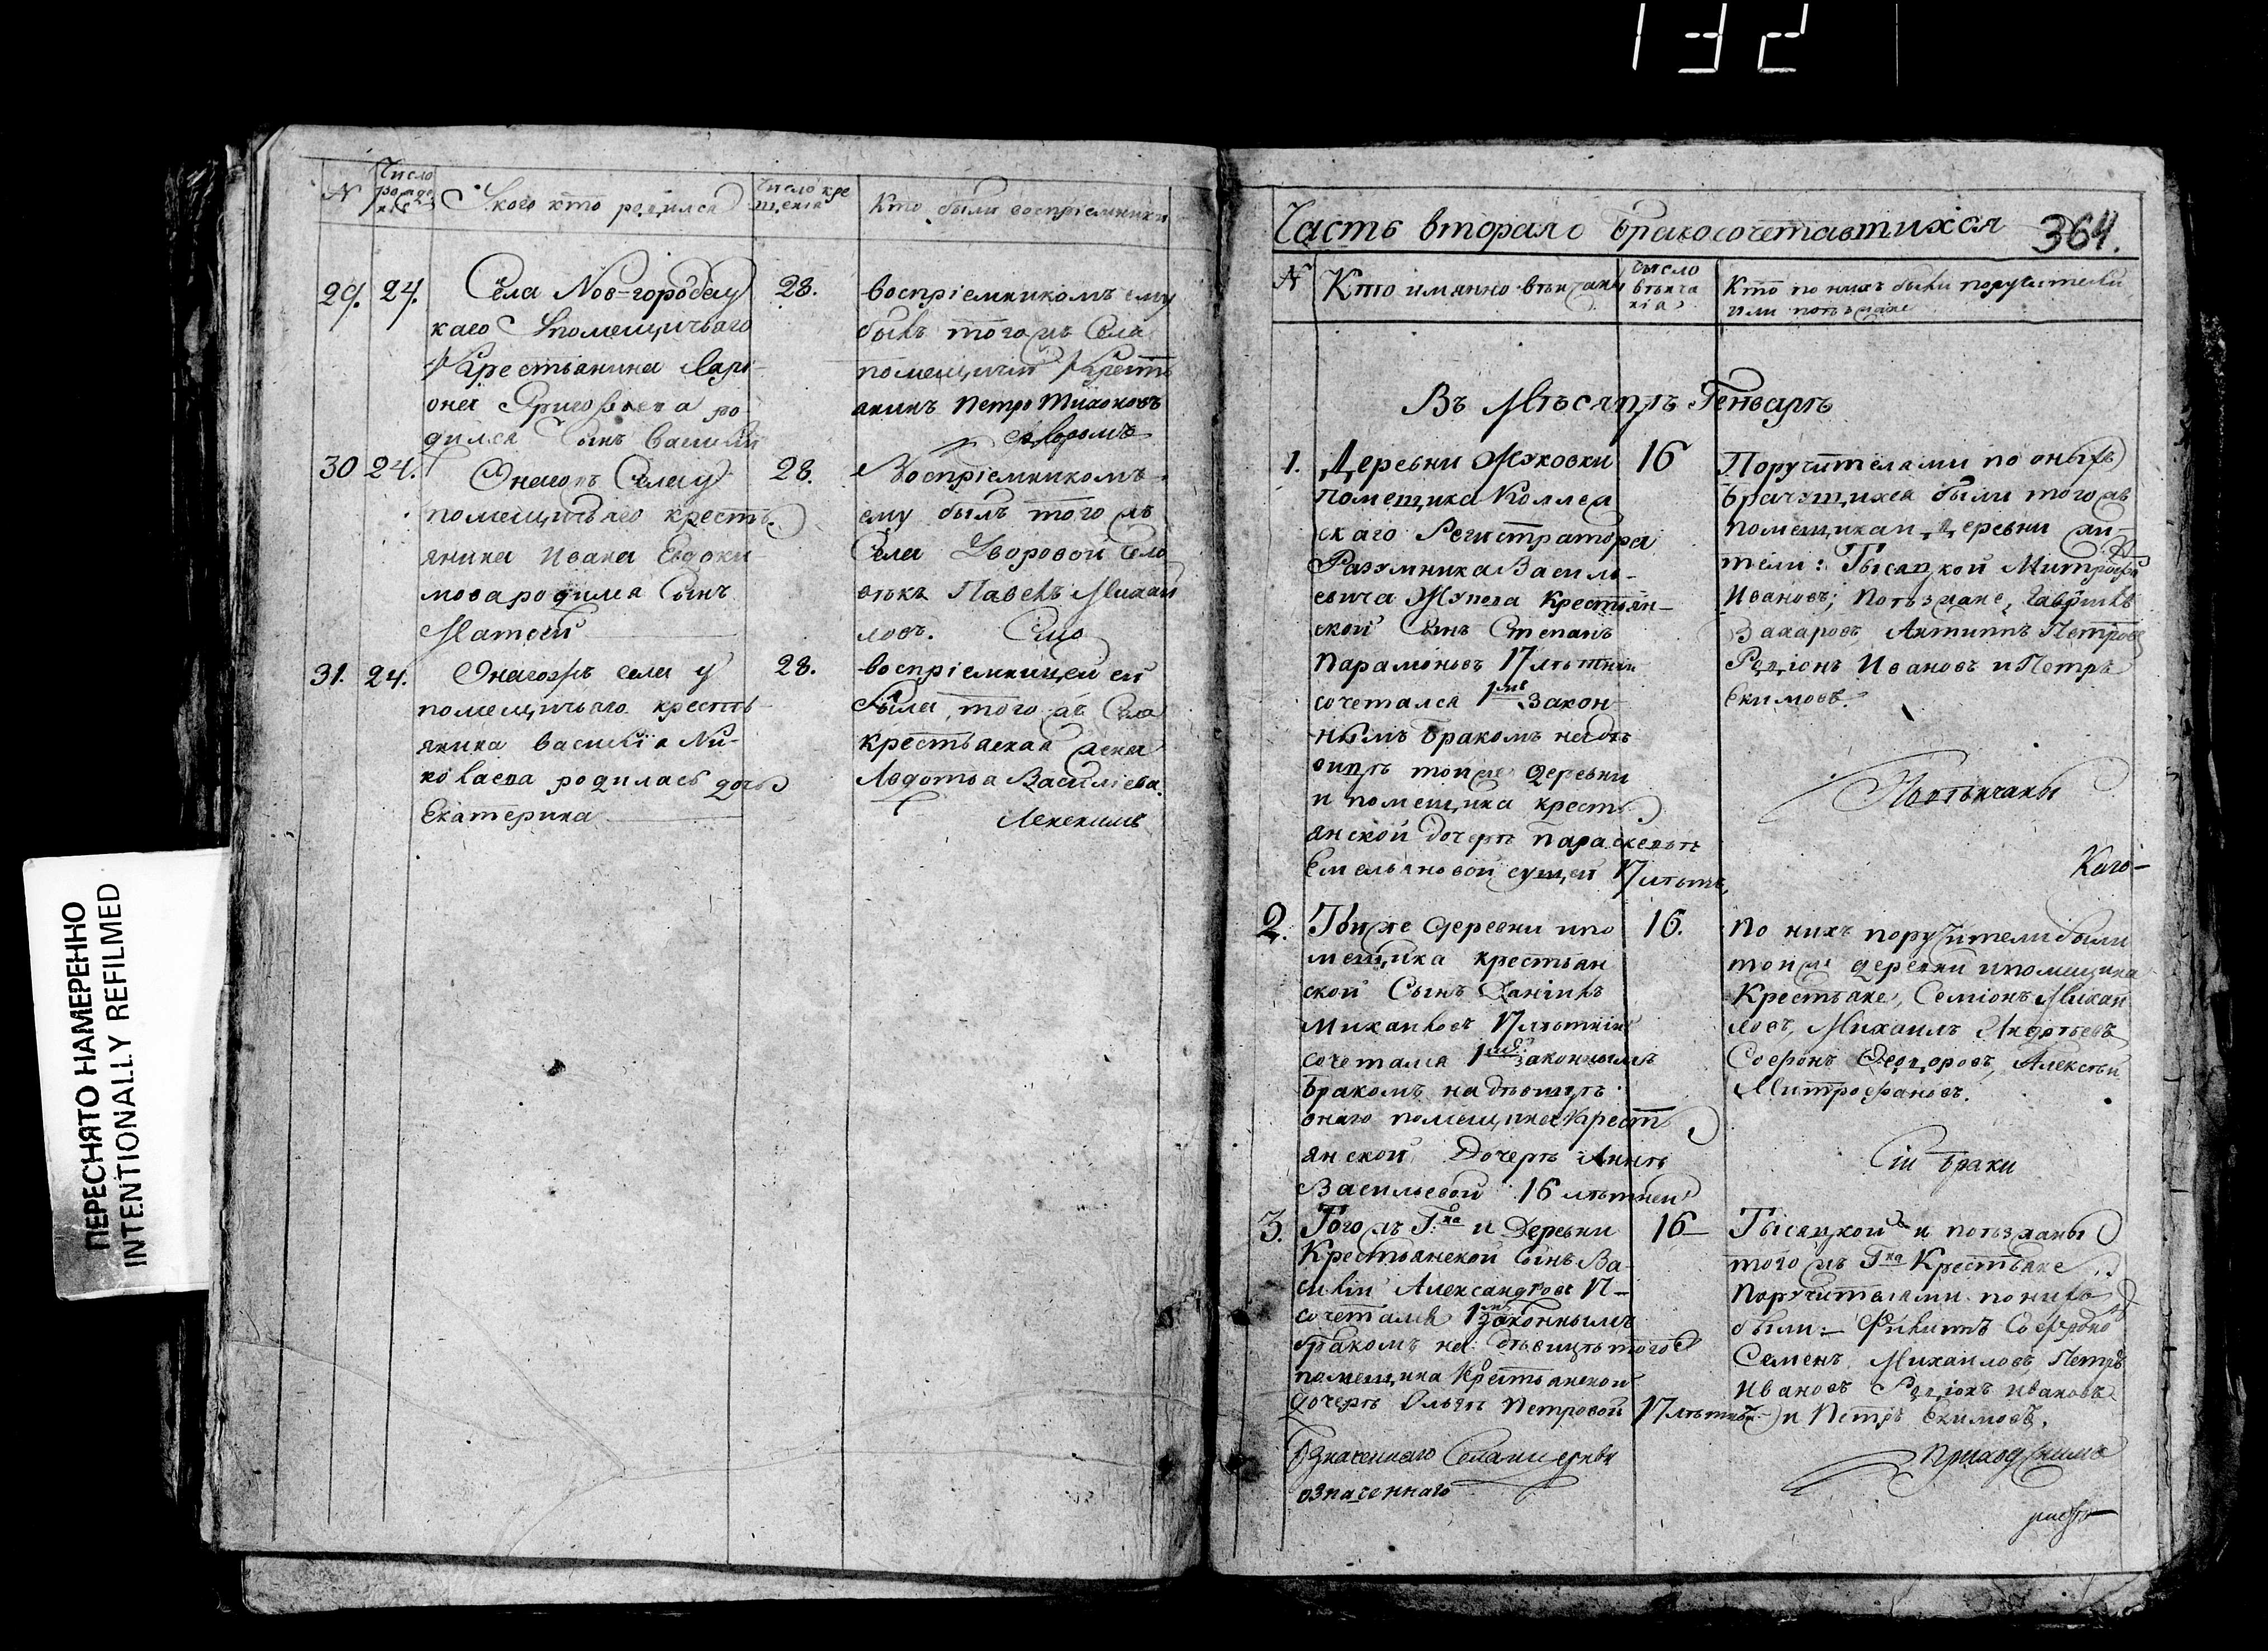 132
ПЕРЕСНЯТО НАМЕРЕННО
INTENTIONALLY REFILMED
N
Число рожде нія
У кого кто родился
Число кре щенія
Кто были воспріемники
29. 24.
Села Нов-городка у
каго помещичьяго
Крестьянина Лари-
она Григорьева ро-
дился Сынъ василій
28.
воспріемникомъ ему
былъ тогожъ Села
помещичій Крестъ
янинъ Петръ Тихоновъ
30 24.
Онагожъ Села у
помещичьяго кресть
янина Ивана Евдоки-
мова родился Сынъ
Матвей
28.
Воспріемникомъ
ему былъ тогожъ
Села Дворовой Чело
векъ Павелъ Михай
ловъ.
31. 24.
Онагожъ села у
помещичьяго кресть-
янина василія Ни-
колаева родилась дочь
Екатерина
28.
воспріемницей ей
была, тогожъ Села
крестьянская жена
Авдотья Василіева.
Часть вторая о бракосочетавшихся 364.
N
Кто имянно венчаны
число венча нія
Кто по нихъ были поручители
или поезжане
Въ Месяце Генваре
1.
Деревни Жуковки
помещика Коллеж
скаго Регистратора
Разумника Василь-
евича Жупела Крестьян-
ской Сынъ Степанъ
Парамоновъ 17 летній
сочетался 1мъ закон-
нымъ бракомъ на де
вице тойже деревни
и помещика кресть
янской дочере Параскеве
Емельяновой сущей 17 летъ
16
Поручителями по оныхъ
брачущихся были тогожъ
помещика и деревни жи-
тели: Тысяцкой Митрофа
Ивановъ; поезжане, Гаврилъ
Захаровъ, Антипъ Петровъ
Родіонъ Ивановъ и Петръ
Екимовъ.
Повенчаны
Каго-
2.
Тойже деревни и по
мещика крестьян
ской Сынъ Данилъ
Михайловъ 17 летній
сочетался 1мъ законнымъ
бракомъ на девице
онаго помещика Крест
янской Дочере Анне
Васильевой 16 летней
16.
По нихъ поручители были
тойже деревни и помещика
Крестьяне, Семіонъ Михай
ловъ, Михаилъ Андреевъ
Софронъ Федоровъ, Алексей
Митрофановъ.
Сіи браки
3.
Тогожъ Гна и Деревни
Крестьянской Сынъ Ва-
силій Александровъ 17-
сочетался 1мъ законнымъ
бракомъ на девице того
помещика Крестьянской
дочере Ольге Петровой 17 летней
16
Тысяцкой и поезжаны
тогожъ Гна Крестьяне
Поручителями по нихъ
были:- Филипъ Софроно
Семенъ Михаиловъ, Петръ
Ивановъ Родіонъ Ивановъ
и Петръ Екимовъ.
означеннаго